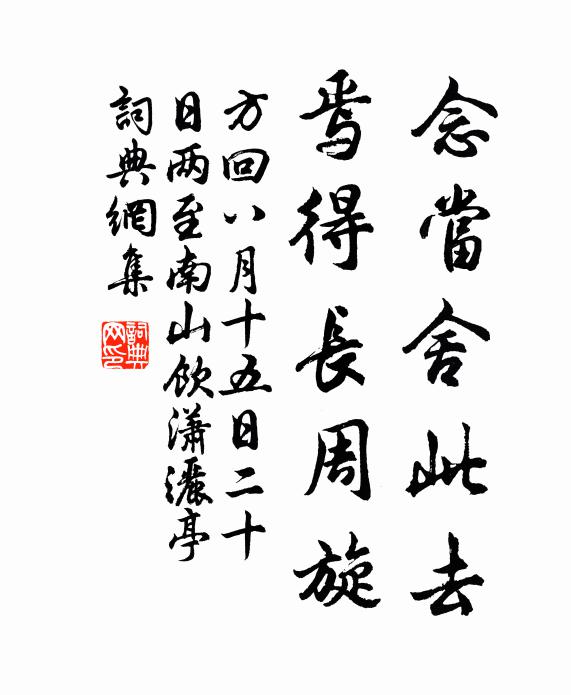 念當舍此去
焉得長周旋
方回八月十五日二十
日两至南山飲瀟灑亭
詞典網集
詞典
网印